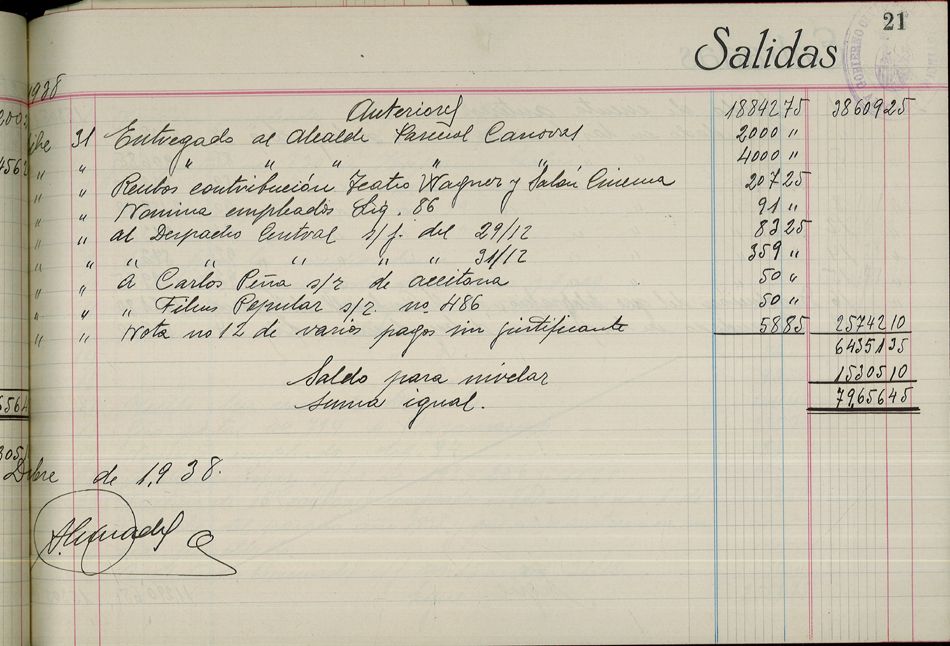 21
Salidas
1938
Anterior 18842 75 38609 25
Dibre 31 Entregado al Alcalde Pascual Canovas 2000 "
" " " " " " " 4000 "
" " Recibos contribución Teatro Wagner y Salón Cinema 207 25
" " Nomina empleados Liq. 86 91 "
" " al Despacho Central s/f. del 29/12 83 25
" " " " " " " 31/12 359 "
" " a Carlos Peña s/r de aceitona 50 "
" " " Films Popular s/r. no 486 50 "
" " Nota no 12 de varios pagos sin justificante 58 85 25742 10
64351 35
Saldo para nivelar 15305 10
Suma igual. 79,656 45
Dbre de 1,938.